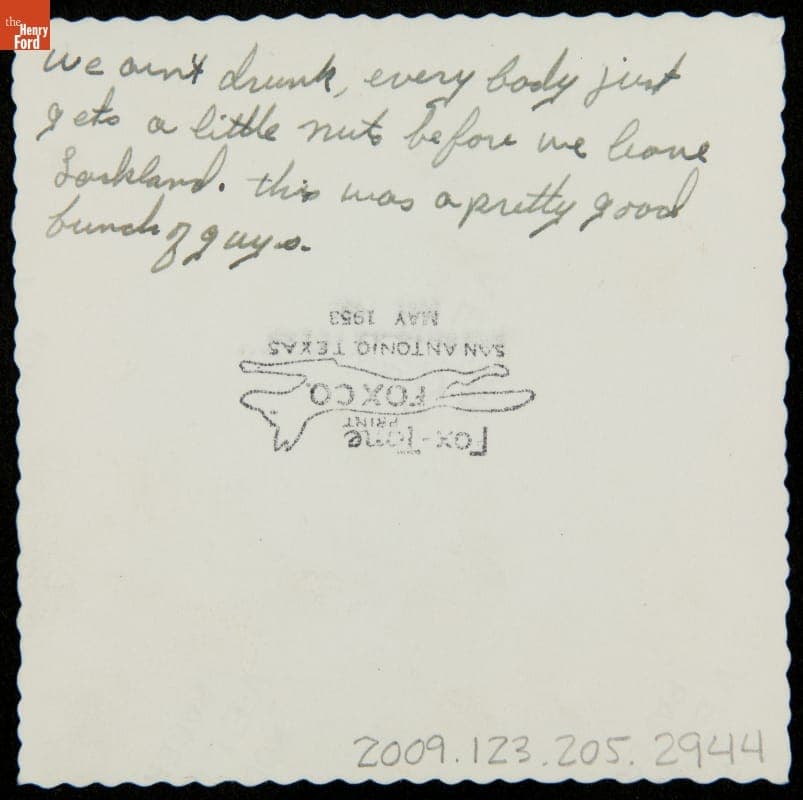 the
Henry
Ford
we ain't drunk, every body just
gets a little nuts before we leave
Lackland. this was a pretty good
bunch of guys.
Fox-Tone
PRINT
FOX CO.
SAN ANTONIO, TEXAS
MAY 1953
2009.123.205.2944